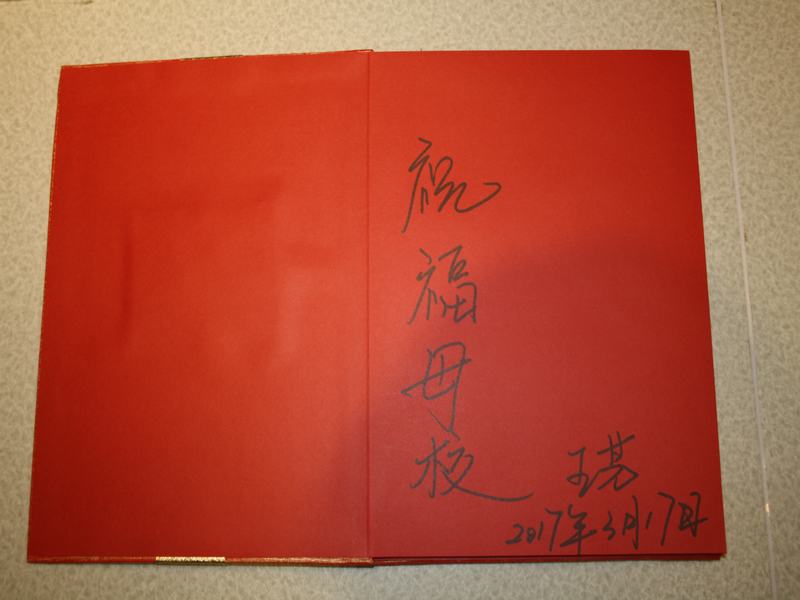 祝福母校
王
2017年3月17日